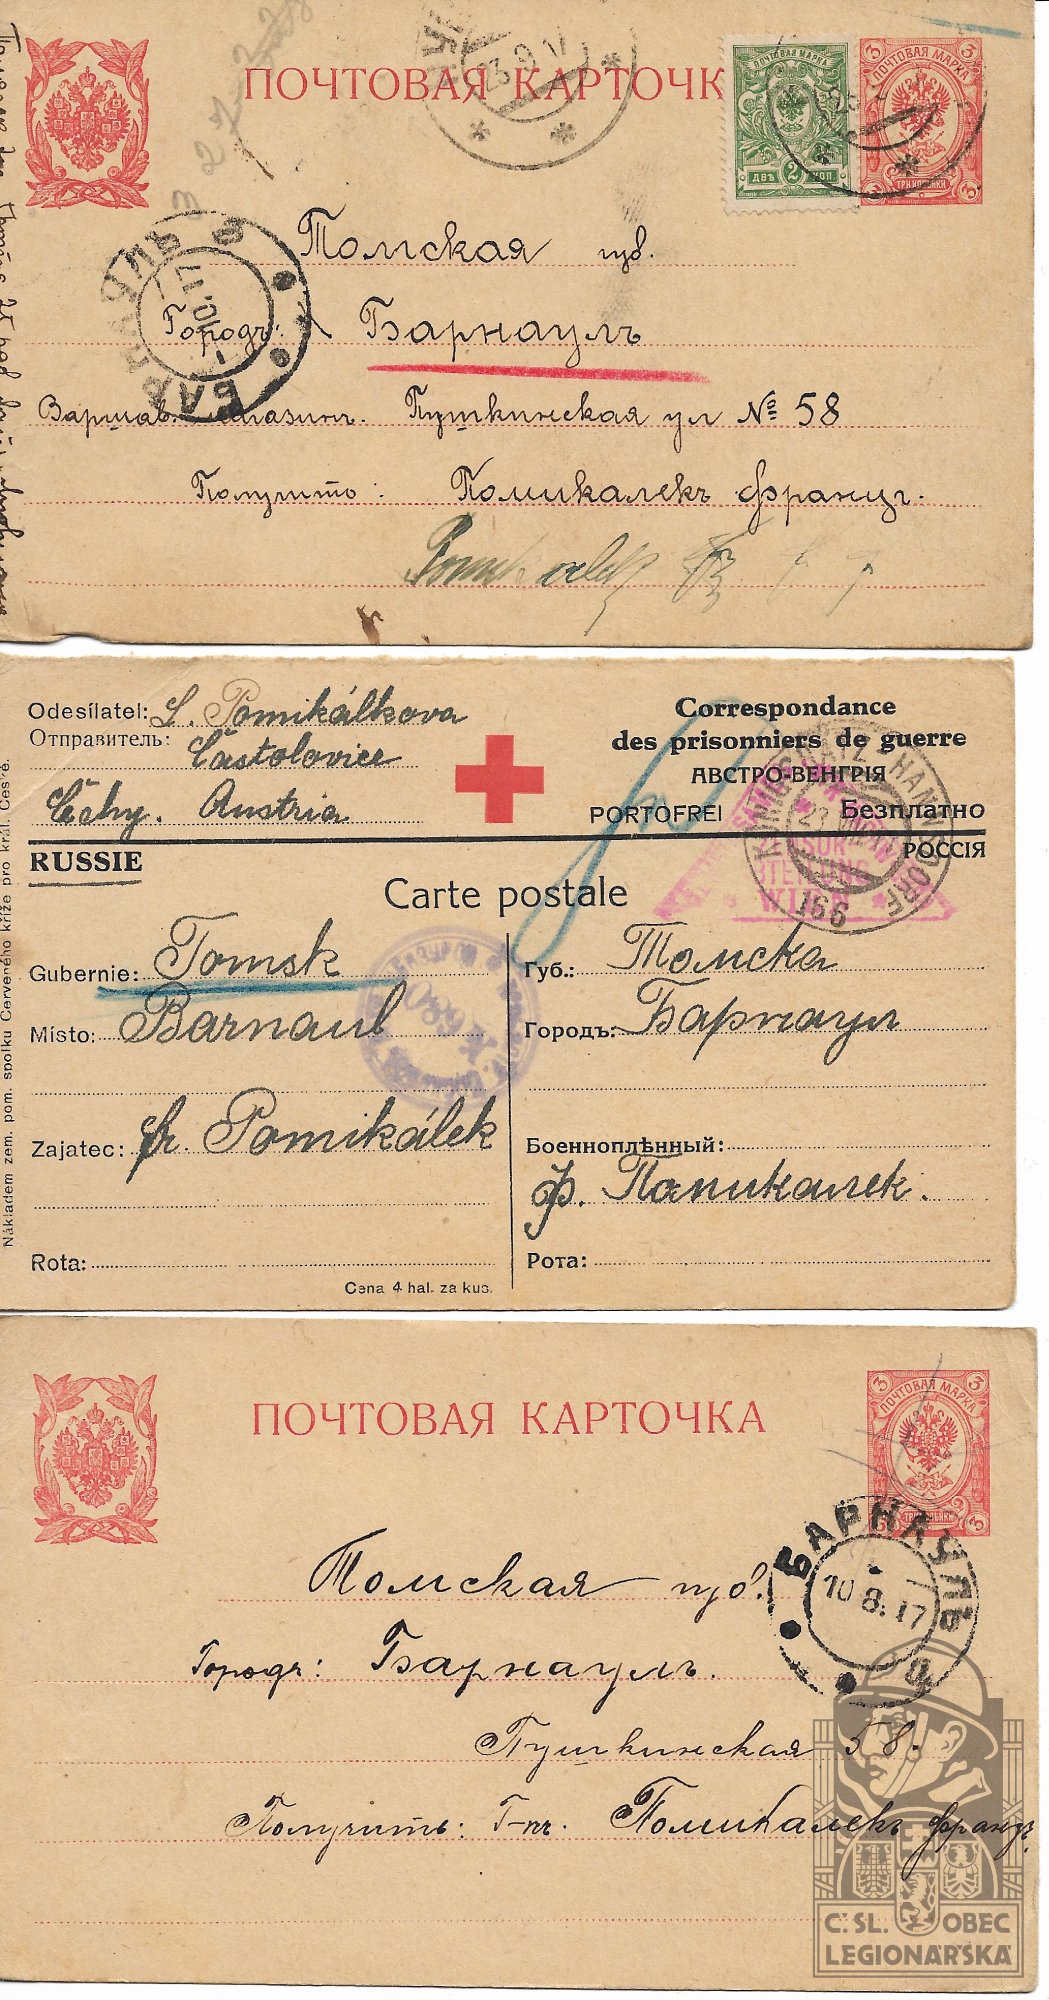 ПОЧТОВАЯ КАРТОЧК
ПОЧТОВАЯ МАРКА
ДВѢ 2 КОП.
3 ПОЧТОВАЯ МАРКА 3
3 ТРИ КОПѢЙКИ 3
23.9.17
БАРНАУЛЪ
Томская губ.
Городъ: Барнаулъ
Варшав. магазинъ. Пушкинская ул № 58
Получить: Помикалекъ Францъ.
Odesílatel: L. Pomikálkova
Отправитель: Častolovice
Čechy. Austria
Correspondance
des prisonniers de guerre
АВСТРО-ВЕНГРІЯ
PORTOFREI Безплатно
RUSSIE
РОССІЯ
KÖNIGGRÄTZ HANNSDORF
166
ZENSUR-
WIEN
Carte postale
Gubernie: Tomsk
Místo: Barnaul
Zajatec: Fr. Pomikálek
Rota:
Cena 4 hal. za kus.
Губ.: Томска
Городъ: Барнаул
Боеннопл҄ѣнный:
Ф. Помикалек.
Рота:
Nákladem zem. pom. spolku Červeného kříže pro král. České.
ПОЧТОВАЯ КАРТОЧКА
3 ПОЧТОВАЯ МАРКА 3
БАРНАУЛЪ
10.8.17
Томская губ.
Городъ: Барнаулъ.
Пушкинская 58.
Получить: Г-нъ. Помикалекъ Францъ
Č.SL. OBEC
LEGIONÁŘSKÁ